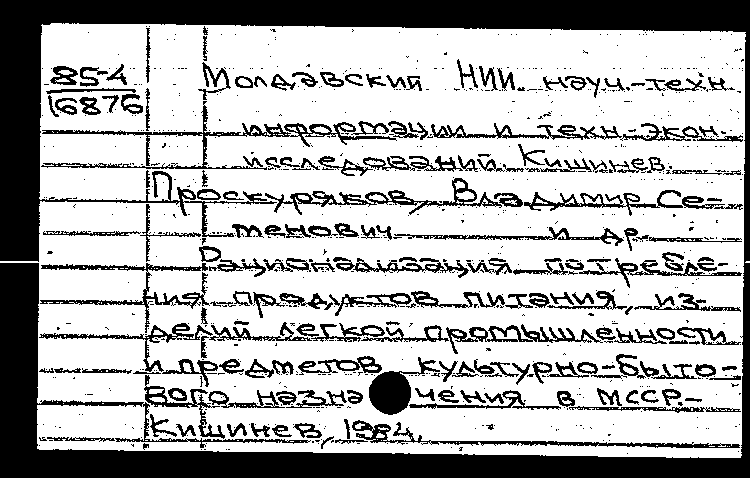 85-4
16876
Молдавский НИИ науч.-техн.
информации и техн.-экон.
исследований. Кишинев.
Проскуряков, Владимир Се-
менович и др.
Рационализация потребле-
ния продуктов питания, из-
делий легкой промышленности
и предметов культурно-быто-
вого назначения в МССР.-
Кишинев, 1984.